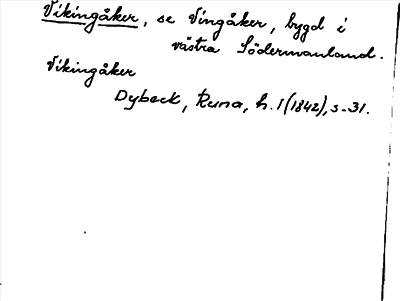 Vikingåker, se Vingåker, bygd i
västra Södermanland.
Vikingåker
Dybeck, Runa, h. 1 (1842), s. 31.